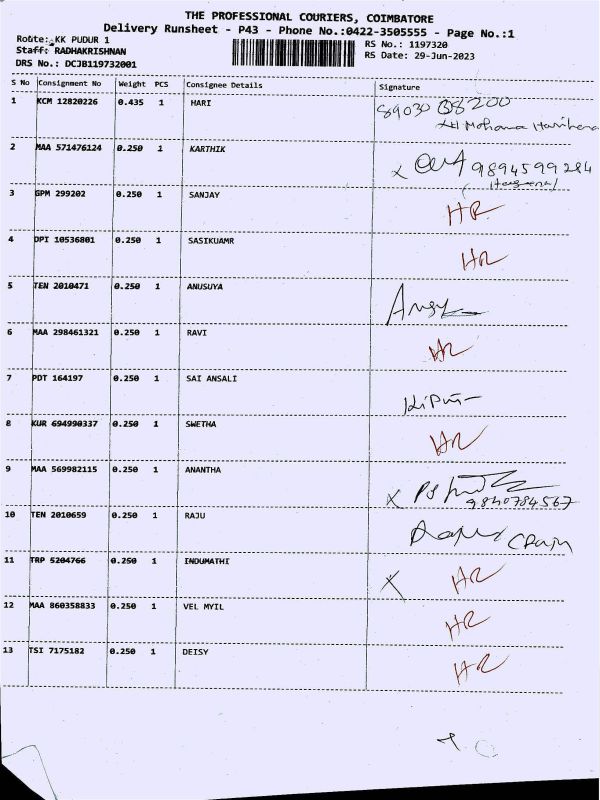 THE PROFESSIONAL COURIERS, COIMBATORE
Delivery Runsheet - P43 - Phone No.:0422-3505555 - Page No.:1
Route: KK PUDUR 1
RS No.: 1197320
Staff: RADHAKRISHNAN
RS Date: 29-Jun-2023
DRS No.: DCJB119732001
S No Consignment No Weight PCS Consignee Details Signature
1 KCM 12820226 0.435 1 HARI
2 MAA 571476124 0.250 1 KARTHIK 9894599284
3 GPM 299202 0.250 1 SANJAY HR
4 DPI 10536801 0.250 1 SASIKUAMR HR
5 TEN 2010471 0.250 1 ANUSUYA
6 MAA 298461321 0.250 1 RAVI HR
7 PDT 164197 0.250 1 SAI ANSALI
8 KUR 694990337 0.250 1 SWETHA HR
9 MAA 569982115 0.250 1 ANANTHA 9840784567
10 TEN 2010659 0.250 1 RAJU
11 TRP 5204766 0.250 1 INDUMATHI X HR
12 MAA 860358833 0.250 1 VEL MYIL HR
13 TSI 7175182 0.250 1 DEISY HR